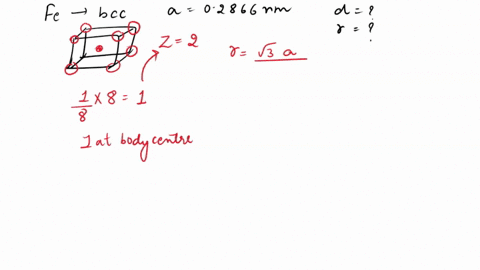 Fe → bcc a = 0.2866 nm d = ?
r = ?
Z = 2
r = √3 a
1/8 × 8 = 1
1 at body centre